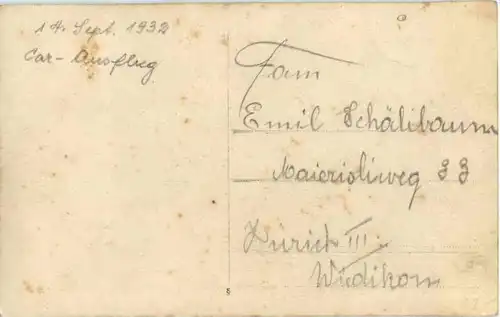 14. Sept. 1932
Car-Ausflug
Fam
Emil Schälibaum
Maierisliweg 33
Zürich III.
Wiedikon